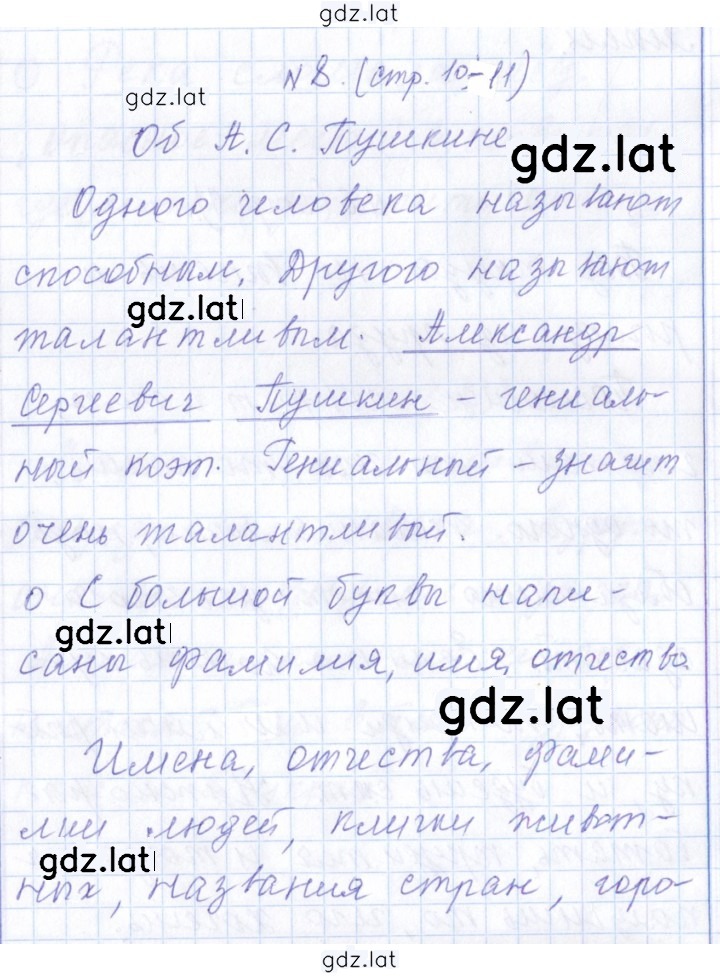 gdz.lat
№8. (стр. 10-11)
gdz.lat
Об А. С. Пушкине.
gdz.lat
Одного человека называют
способным. Другого называют
gdz.lat
талантливым. Александр
Сергеевич Пушкин – гениаль-
ный поэт. Гениальный – значит
очень талантливый.
о С большой буквы напи-
gdz.lat
саны фамилия, имя, отчество.
gdz.lat
Имена, отчества, фами-
лии людей, клички живот-
gdz.lat
ных, названия стран, горо-
gdz.lat